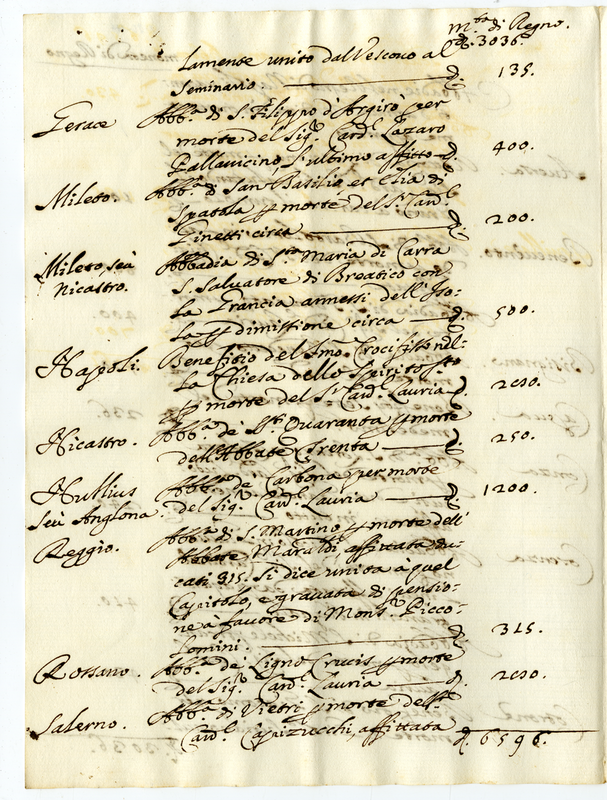 m.ta di Regno.
lamente unito dal Vescovo al d. 3036.
Seminario d. 135.
Gerace Abb.a di S. Filippo d'Argirò per
morte del Sig.r Card.l Lazaro
Pallavicino, l'ultimo affitto d. 400.
Mileto. Abb.a di San Basilio, et Elia di
Spatola p morte del S.r Card.l
Ginetti circa d. 200.
Mileto, seù Abbadia di S.ta Maria di Carra
Nicastro. S. Salvatore di Breatico con
la Grancia annessi dell'Iso:
la p dimissione circa d. 500.
Napoli. Benefitio del S.mo Crocifisso nel:
la Chiesa dello Spirito S.to
p morte del S.r Card. Lauria d. 2000.
Nicastro. Abb.a de S.ti Quaranta p morte
dell'Abbate Trenta d. 250.
Nullius Abb.a de Carbona per morte
seù Anglona. del Sig.r Card.l Lauria d. 1200.
Reggio. Abb.a di S. Martino p morte dell'
Abbate Maraldi, affittata du:
cati 315. Si dice unita à quel
Capitolo, e gravata di pensio:
ne à favore di Mons.r Picco:
lomini. d. 315.
Rossano. Abb.a de Ligno Crucis p morte
del Sig.r Card.l Lauria d. 2000.
Salerno. Abb.a di Vietri p morte del
Card.l Capizucchi, affittata d. 6596.